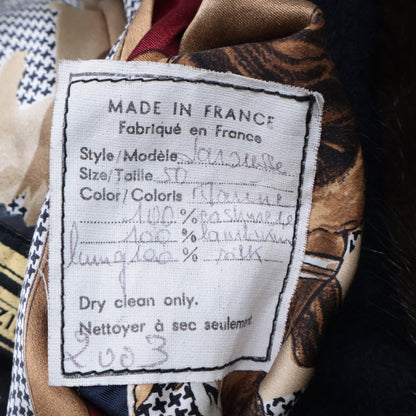 MADE IN FRANCE
Fabriqué en France
Style/Modèle
Size/Taille 50
Color/Coloris Marine
100 % cashmere
100 %
100 % silk
Dry clean only.
Nettoyer à sec seulement
2003